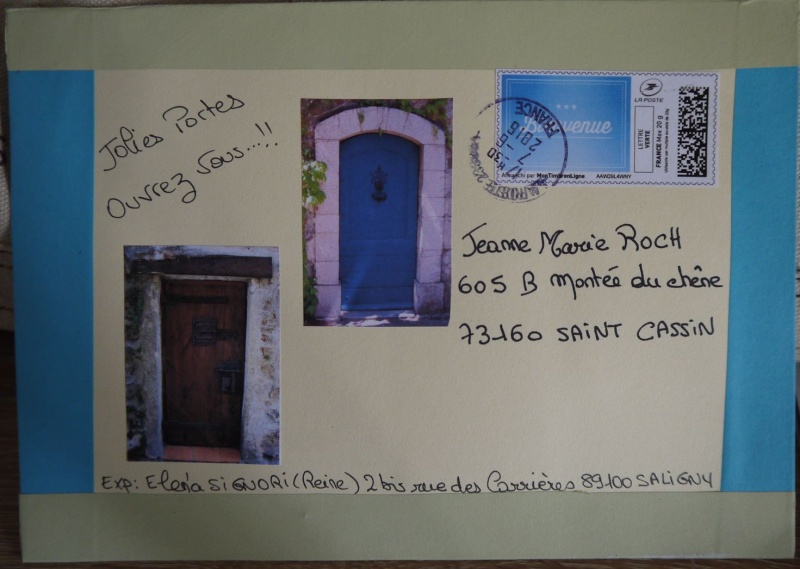 Jolies Portes
Ouvrez vous.....!!
Bienvenue
LA POSTE
LETTRE
VERTE
FRANCE Max 20 g
Affranchi par MonTimbrenLigne
FRANCE
7-6
2016
Jeanne Marie ROCH
605 B Montée du chêne
73160 SAINT CASSIN
Exp: Elena SIGNORI (Reine) 2 bis rue des Carrières 89100 SALIGNY